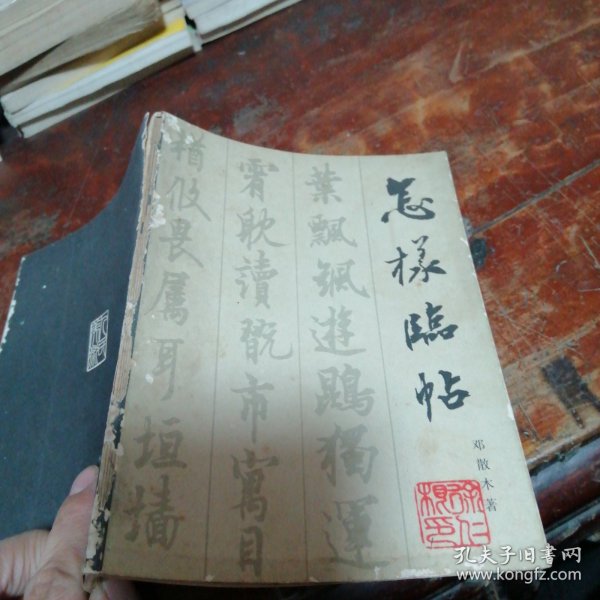 怎樣臨帖
邓散木著
葉飄颻遊鵾獨運
霄耽讀翫市寓目
攸畏屬耳垣墻
孔夫子旧书网
www.kongfz.com